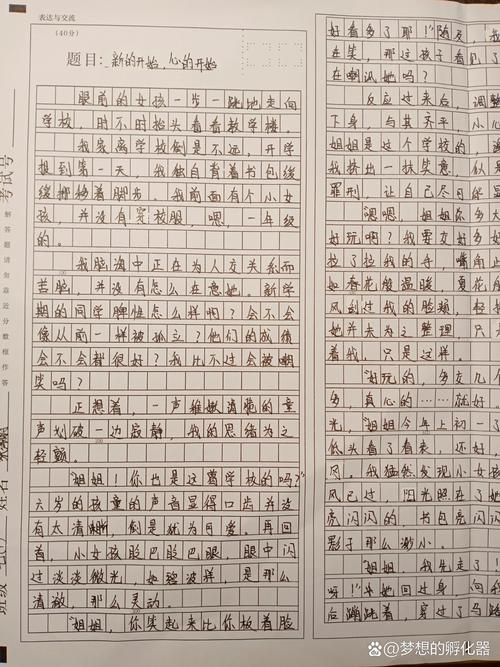 表达与交流
（40分）
题目：新的开始，心的开始
眼前的女孩一步一跳地走向
学校，时不时抬头看看教学楼。
我家离学校倒是不远，开学
报到第一天，我独自背着书包缓
缓挪动着脚步。我前面有个小女
孩，并没有穿校服，嗯，一年级
的。
我脑海中正在为人交关系而
苦脑，并没有怎么在意她。新学
期的同学脾性怎么样啊？会不会
像从前一样被孤立？他们的成绩
会不会都很好？我比不过会被嘲
笑吗？
正想着，一声稚嫩清脆的童
声划破一边寂静，我的思绪为之
轻颤。
“姐姐！你也是这曹学校的吗？”
六岁的孩童的声音显得口齿并没
有太清晰，倒是犹为可爱。再回
着，小女孩脸巴脸巴眼，眼中闪
过淡淡微光，如碧波样，是那么
清澈，那么灵动。
“姐姐，你笑起来比你板着脸
好看多了耶！”随及，我
在笑，那这孩子看见了
在嘲讽她吗？
反应过来后，调整
下身，与其齐平，小心
姐姐是这个学校的，
我挤出一抹笑意，似是
罪刑，让自己尽可能显
“嗯嗯，姐姐你多大
好玩啊？我要交好多好
拉了拉我的手，嘴角止
如春花般温暖，夏花
风刮过我的脸颊，轻
她并未为之整理，只
着我，只是这样。
“好玩的，多交几个
多，真心的……就好。
光，“姐姐今年上初一了
低头看了看表，还好，
冈。我猛然发现小女孩
风已过，阳光照在了她
亮闪闪的，书包亮闪闪
影子那么渺小。
“姐姐，我先走了！
呀！”她回过身，向我
后蹦跳着，穿过了马路
解答题请勿靠近分数框作答
考试号
姓名
班级
@梦想的孵化器